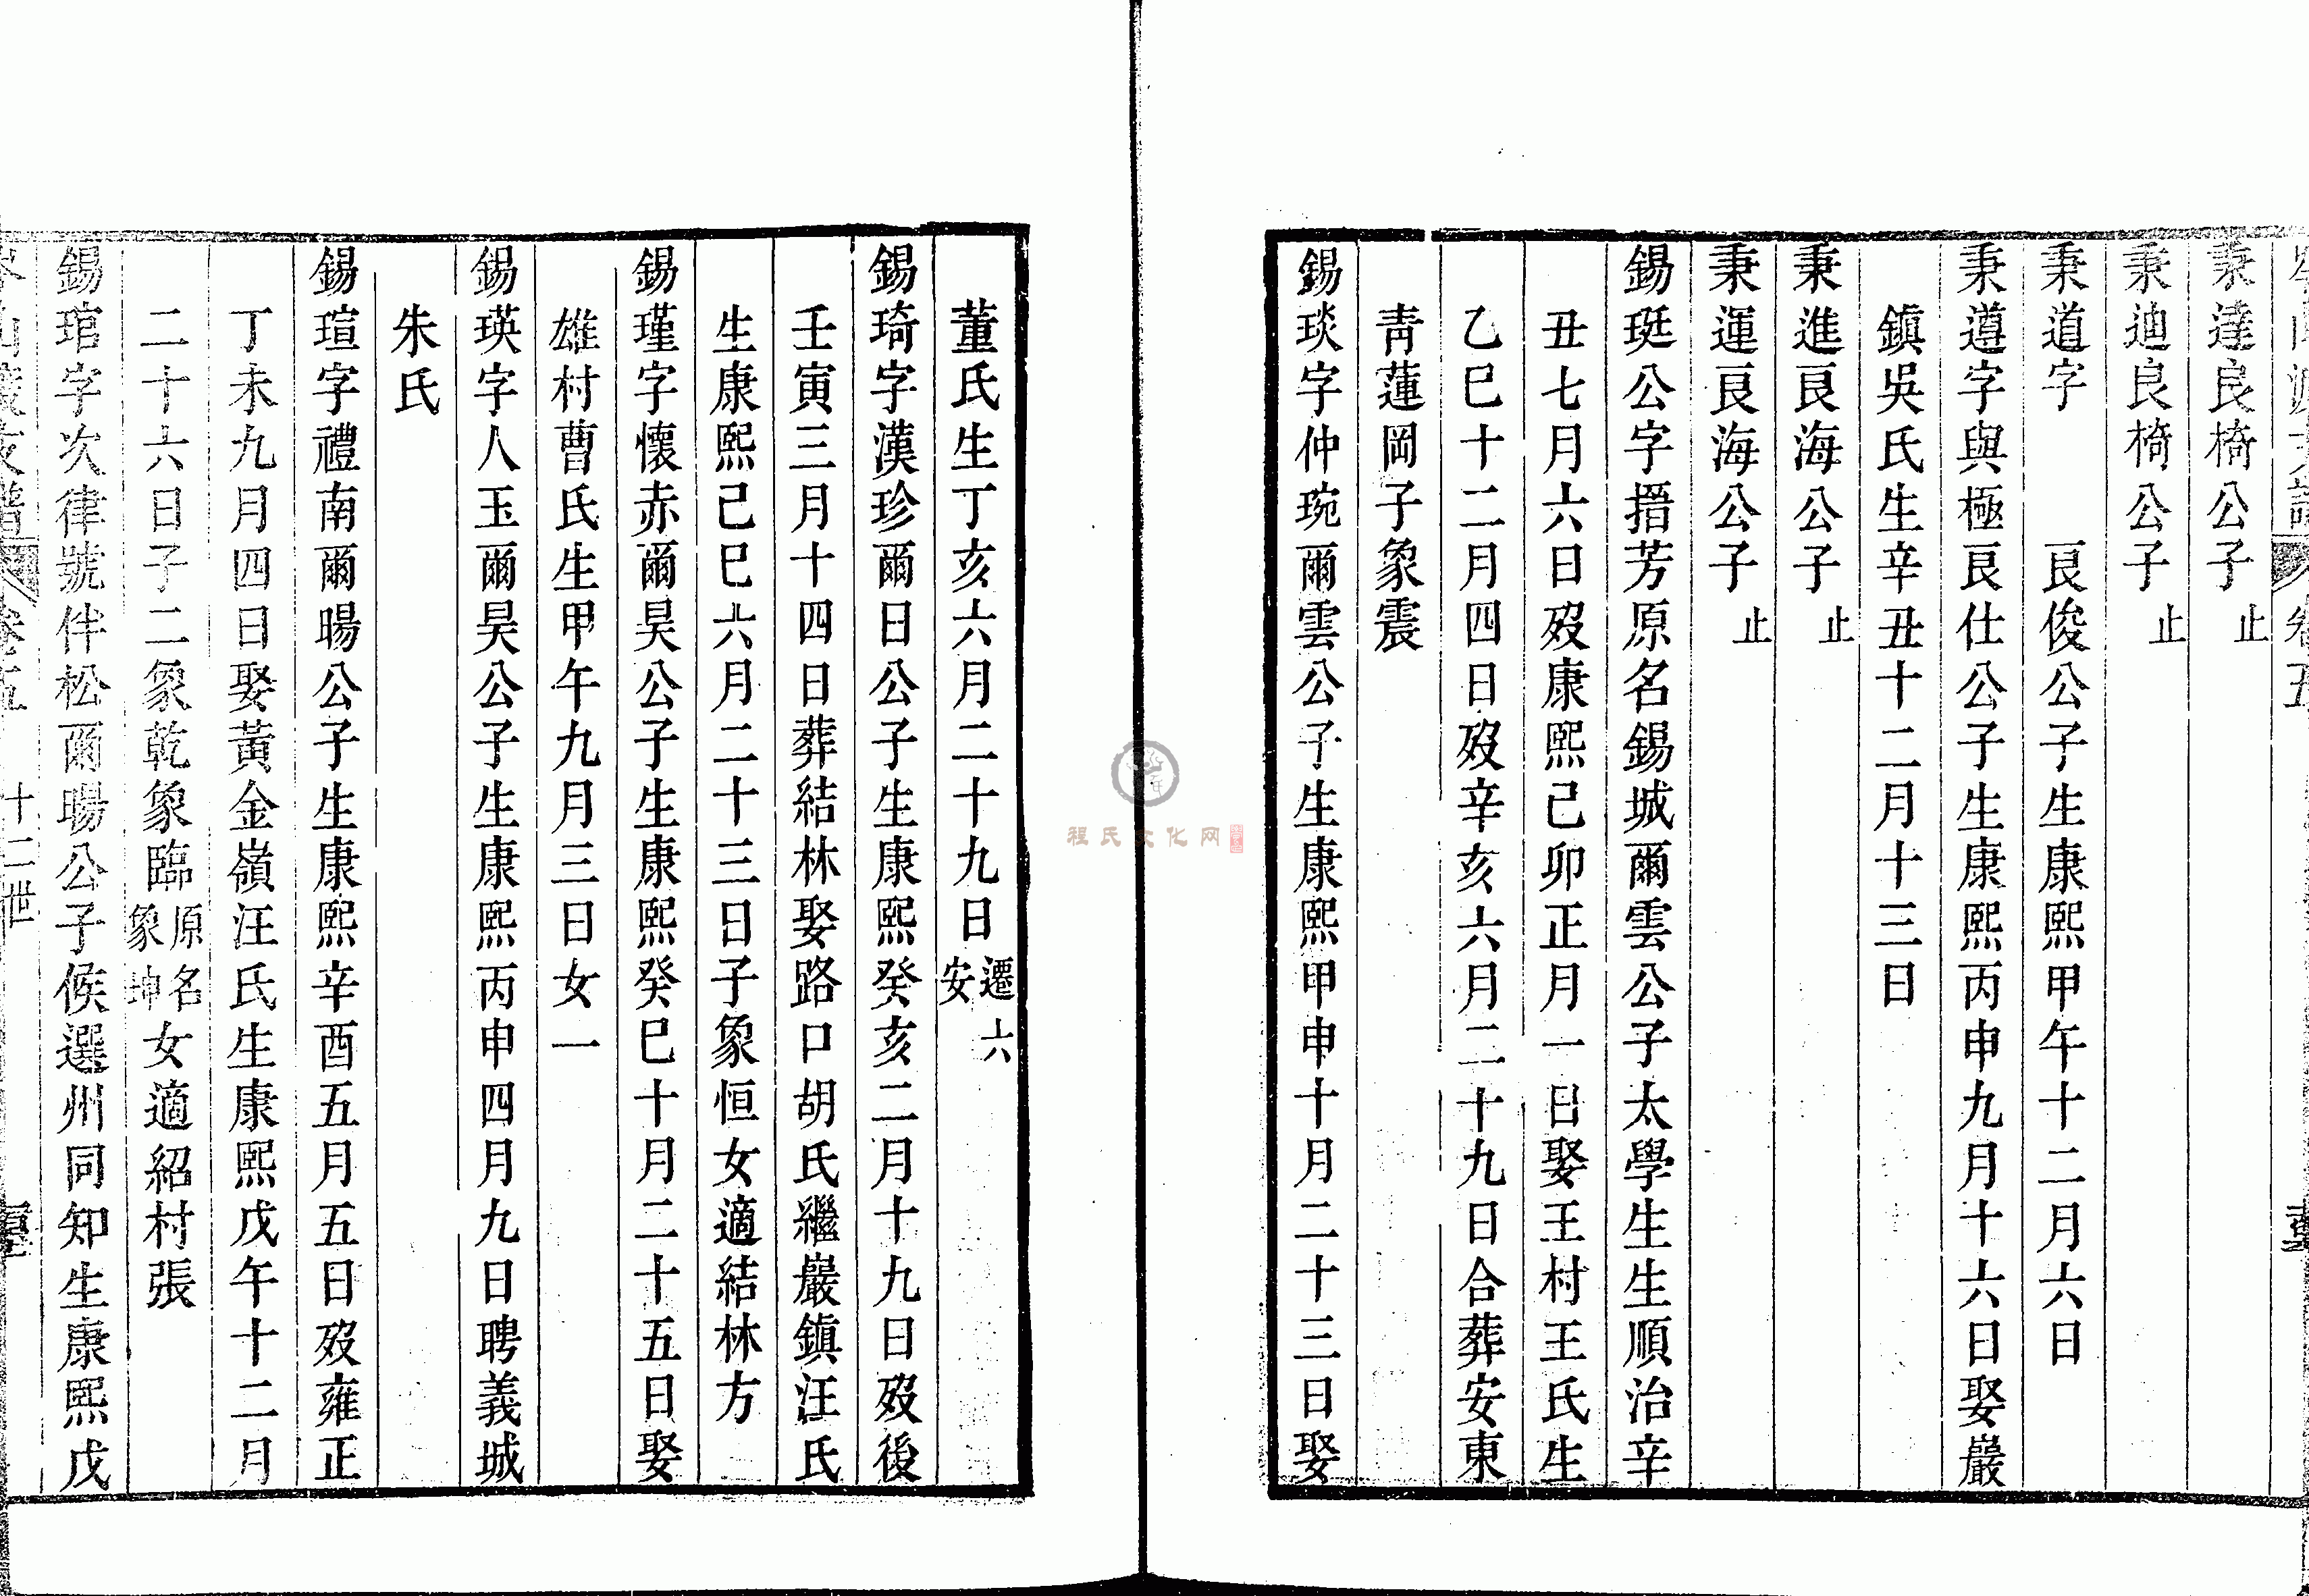 秉達良椅公子止
秉迪良椅公子止
秉道字　良俊公子生康熙甲午十二月六日
秉遵字與極良仕公子生康熙丙申九月十六日娶巖
鎮吳氏生辛丑十二月十三日
秉進良海公子止
秉運良海公子止
錫珽公字搢芳原名錫城爾雲公子太學生生順治辛
丑七月六日歿康熙己卯正月一日娶王村王氏生
乙巳十二月四日歿辛亥六月二十九日合葬安東
青蓮岡子象震
錫琰字仲琬爾雲公子生康熙甲申十月二十三日娶
董氏生丁亥六月二十九日遷六安
錫琦字漢珍爾日公子生康熙癸亥二月十九日歿後
壬寅三月十四日葬結林娶路口胡氏繼巖鎮汪氏
生康熙己巳六月二十三日子象恒女適結林方
錫瑾字懷赤爾昊公子生康熙癸巳十月二十五日娶
雄村曹氏生甲午九月三日女一
錫瑛字人玉爾昊公子生康熙丙申四月九日聘義城
朱氏
錫瑄字禮南爾暘公子生康熙辛酉五月五日歿雍正
丁未九月四日娶黃金嶺汪氏生康熙戊午十二月
二十六日子二象乾象臨原名象坤女適紹村張
錫琯字次律號伴松爾暘公子候選州同知生康熙戊
卷五　十二世
程氏文化网